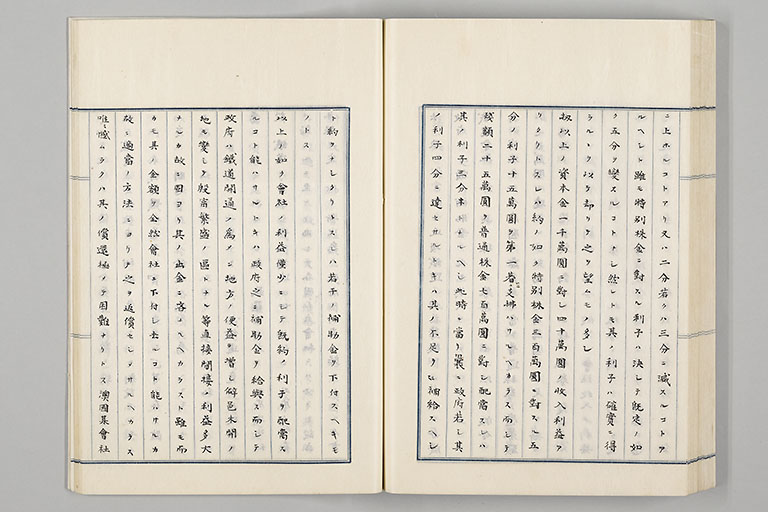 ニ上ホルコトアリ又ハ二分若クハ三分ニ減スルコトア
ルヘシト雖モ特別株金ニ對スル利子ハ決シテ既定ノ如
ク五分ヲ變スルコトナシ然シトモ其ノ利子ハ確實ニ得
ラルヽヲ以テ却リテ之ヲ望ムモノ多シ
扨以上ノ資本金一千萬圓ニ對シ四十萬圓ノ收入利益ア
リタリトスレハ約ノ如ク特別株金三百萬圓ニ對スル五
分ノ利子十五萬圓ヲ第一着ニ支拂ハサルヘカラス而シテ
殘額二十五萬圓ヲ普通株金七百萬圓ニ對シ配當スレハ
其ノ利子三分 ナルヘシ此時ニ當リ曩ニ政府若シ其
ノ利子四分ニ達セサルトキハ其ノ不足ヲ 補給スヘシ
ト約ヲナシタリトスレハ若干ノ補助金ヲ下付スヘキモ
ノトス
以上ノ如ク會社ノ利益僅少ニシテ既約ノ利子ヲ配當ス
ルコト能ハサルトキハ政府之ニ補助金ヲ給與ス而シテ
政府ハ鐵道開通ノ爲メニ地方ノ便益ヲ增シ僻邑未開ノ
地モ變シテ殷富繁盛ノ區トナル等直接間接ノ利益多大
ナルカ故ニ固ヨリ其ノ出金ニ吝ナルヘカラスト雖モ而
カモ其ノ金額ヲ全然會社ニ下付シ去ルコト能ハサルカ
故ニ適當ノ方法ニヨリテ之ヲ返償セシメサルヘカラス
唯ニ憾ムラクハ其ノ償還極メテ困難ナリトス澳國某會社